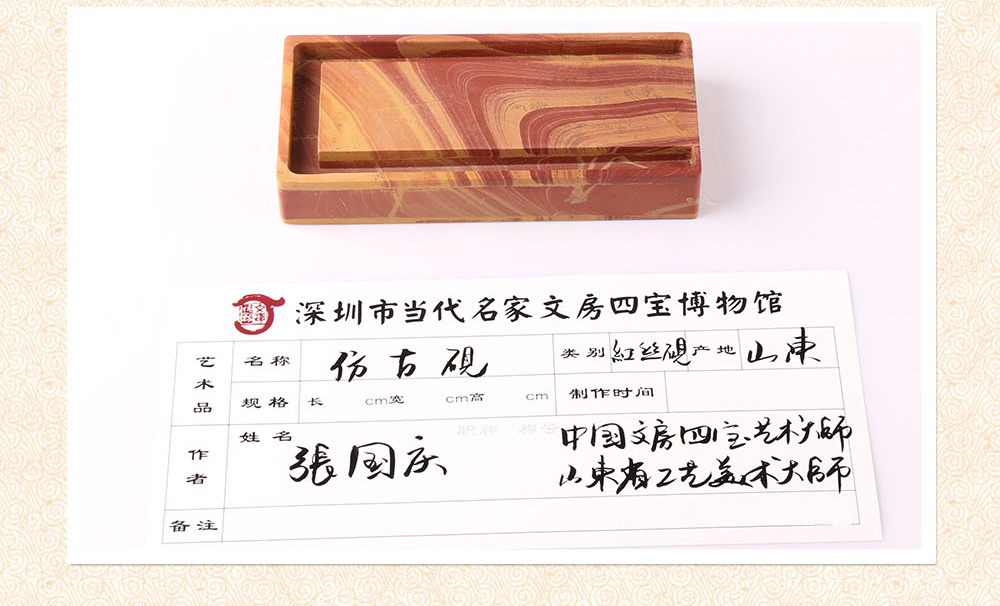 深圳市当代名家文房四宝博物馆
艺术品 名称 仿古硯 类别 紅丝硯 产地 山東
规格 长 cm宽 cm高 cm 制作时间
作者 姓名 張国庆 职称/称号 中国文房四宝艺术大師
山東省工艺美术大師
备注